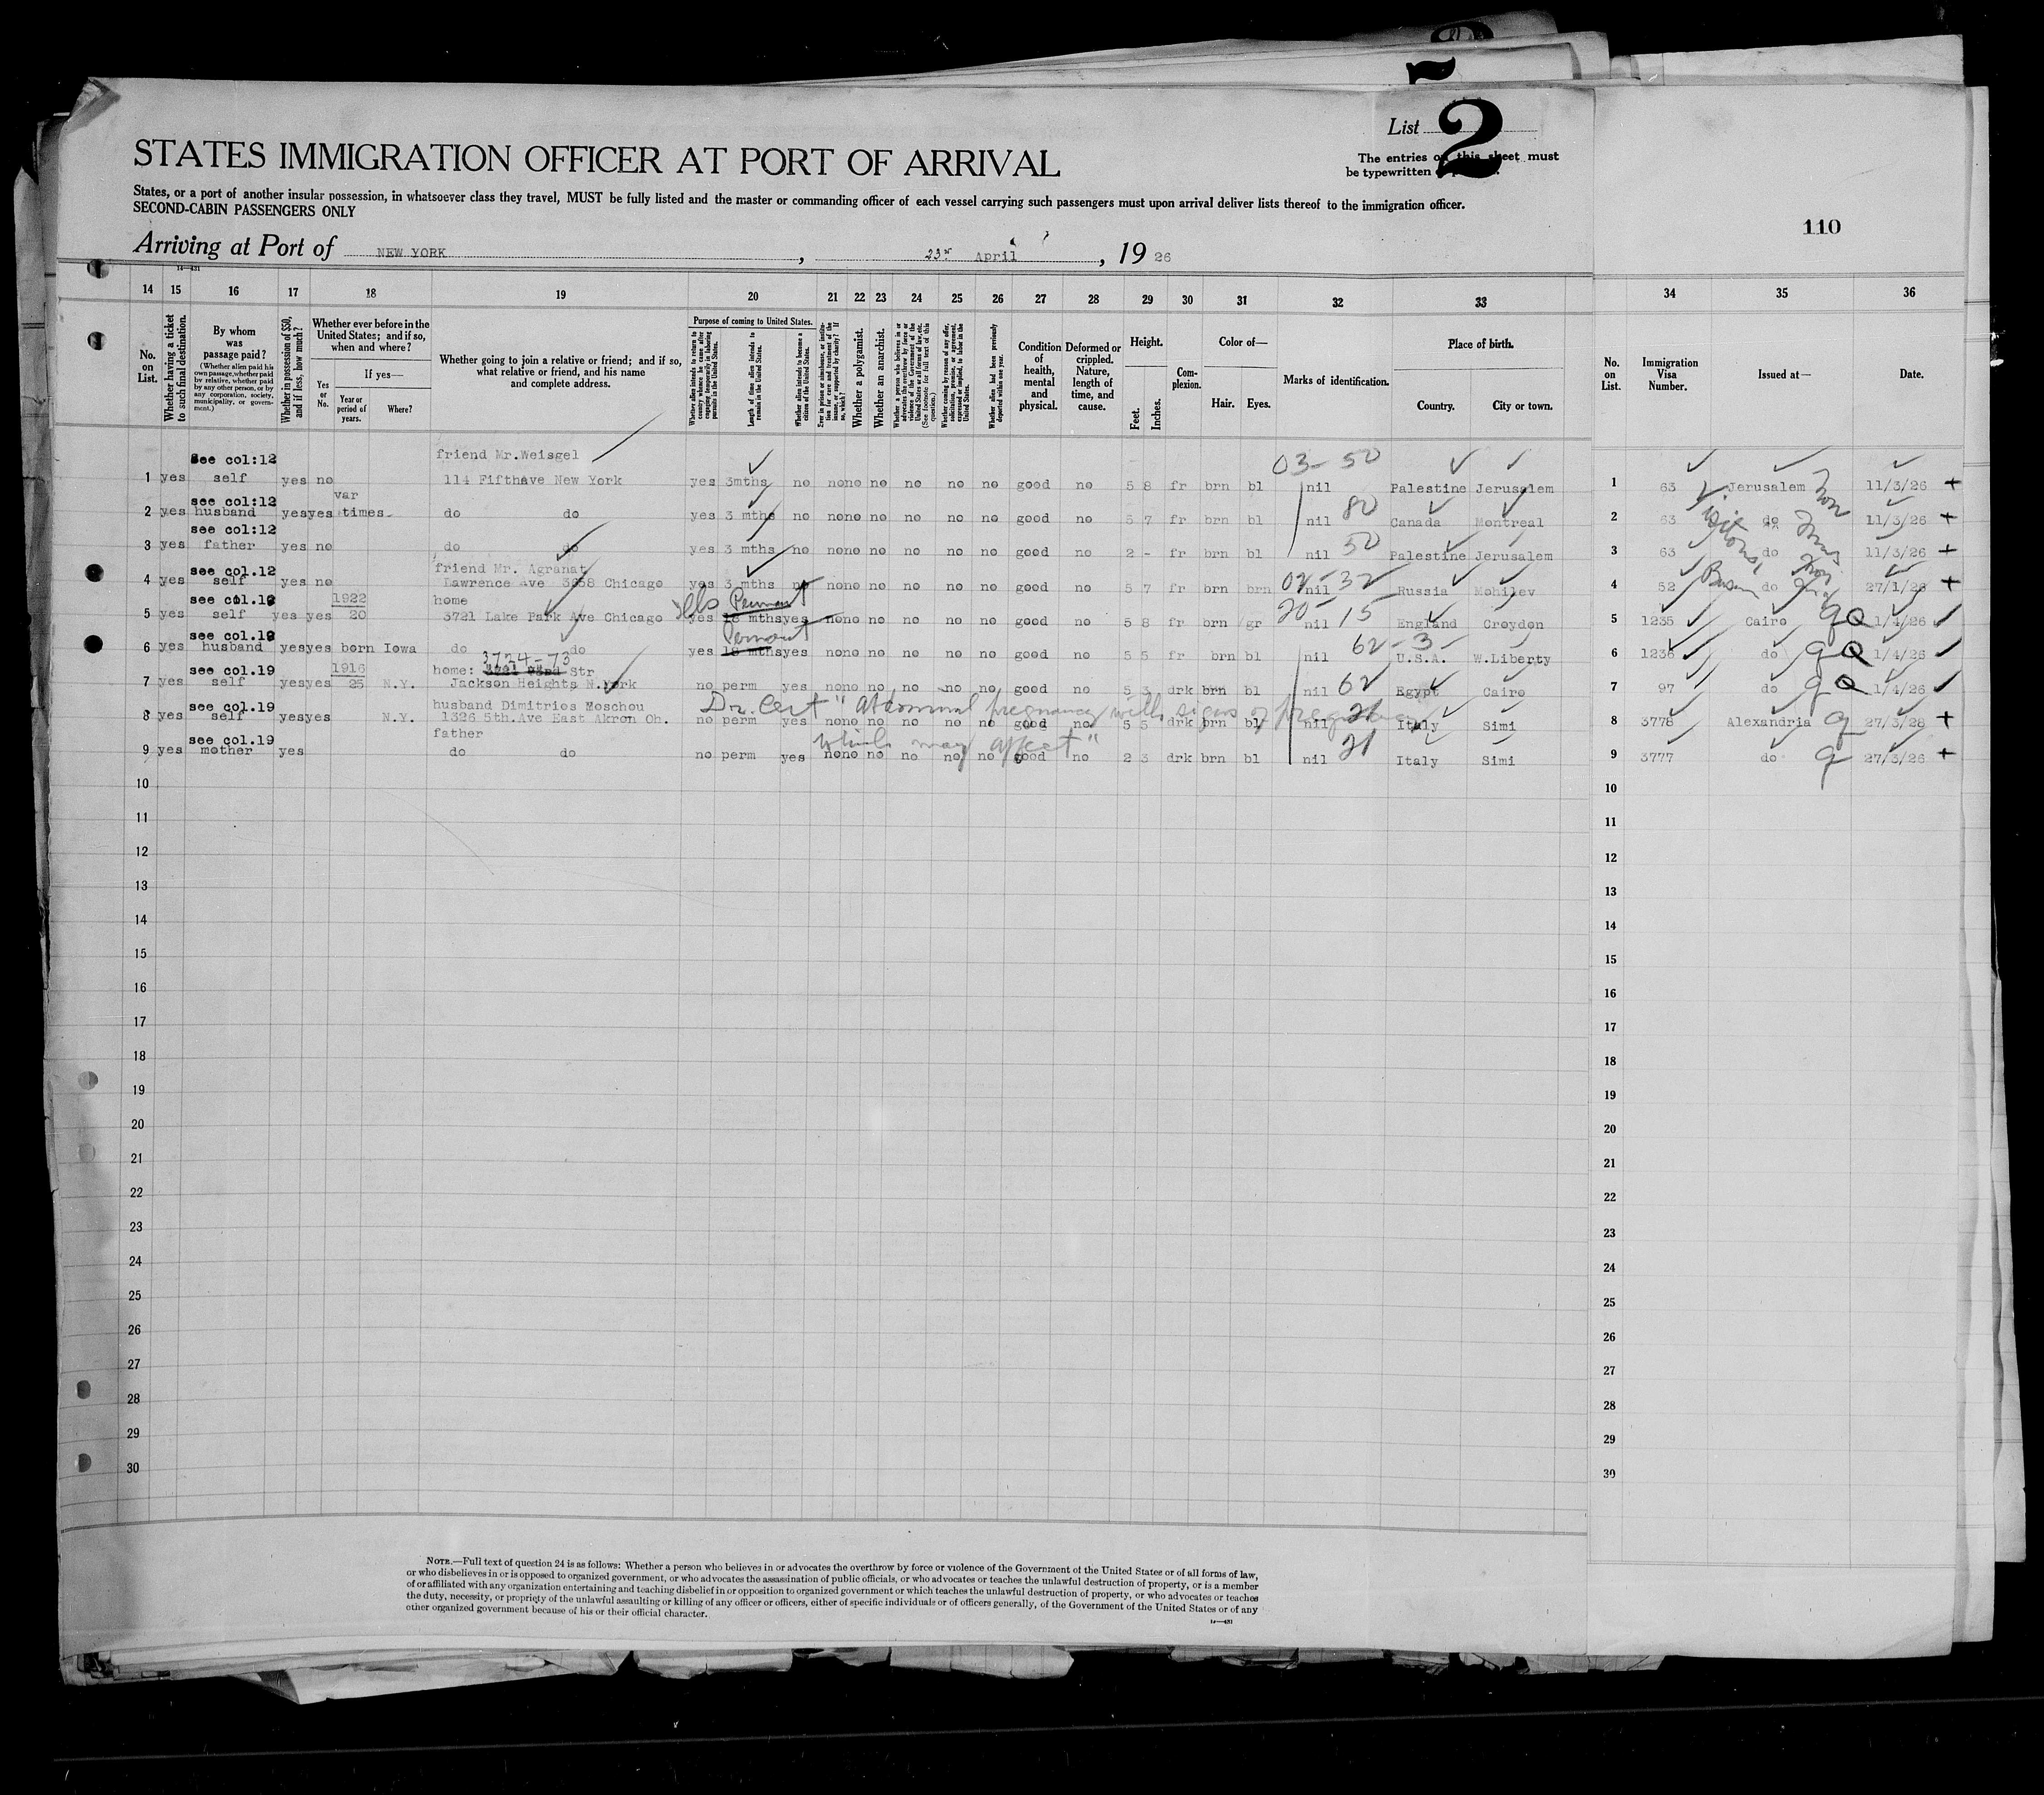 List 2
STATES IMMIGRATION OFFICER AT PORT OF ARRIVAL
The entries on this sheet must
be typewritten
States, or a port of another insular possession, in whatsoever class they travel, MUST be fully listed and the master or commanding officer of each vessel carrying such passengers must upon arrival deliver lists thereof to the immigration officer.
SECOND-CABIN PASSENGERS ONLY
110
Arriving at Port of NEW YORK, 23rd April, 19 26
14 15 16 17 18 19 20 21 22 23 24 25 26 27 28 29 30 31 32 33 34 35 36
No. on List.
Whether having a ticket to such final destination.
By whom was passage paid?
(Whether alien paid his own passage, whether paid by relative, whether paid by any other person, or by any corporation, society, municipality, or government.)
Whether in possession of $50, and if less, how much?
Whether ever before in the United States; and if so, when and where?
Yes or No.
If yes—
Year or period of years.
Where?
Whether going to join a relative or friend; and if so, what relative or friend, and his name and complete address.
Purpose of coming to United States.
Whether alien intends to return to country whence he came after engaging temporarily in laboring pursuits in the United States.
Length of time alien intends to remain in the United States.
Whether alien intends to become a citizen of the United States.
Ever in prison or almshouse, or institution for care and treatment of the insane, or supported by charity? If so, which?
Whether a polygamist.
Whether an anarchist.
Whether a person who believes in or advocates the overthrow by force or violence of the Government of the United States or all forms of law, etc. (See footnote for full text of this question.)
Whether coming by reason of any offer, solicitation, promise, or agreement, expressed or implied, to labor in the United States.
Whether alien had been previously deported within one year.
Condition of health, mental and physical.
Deformed or crippled. Nature, length of time, and cause.
Height.
Feet. Inches.
Complexion.
Color of—
Hair. Eyes.
Marks of identification.
Place of birth.
Country. City or town.
No. on List.
Immigration Visa Number.
Issued at—
Date.
See col:12 friend Mr.Weisgel 03- 50
1 yes self yes no 114 Fifthave New York yes 3mths no no no no no no no good no 5 8 fr brn bl nil Palestine Jerusalem 1 63 Jerusalem 11/3/26 +
see col:12 var 80
2 yes husband yes yes times do do yes 3 mths no no no no no no no good no 5 7 fr brn bl nil Canada Montreal 2 63 do 11/3/26 +
see col:12 50
3 yes father yes no do do yes 3 mths no no no no no no no good no 2 - fr brn bl nil Palestine Jerusalem 3 63 do 11/3/26 +
see col.12 friend Mr. Agranat 02- 32
4 yes self yes no Lawrence Ave 3658 Chicago yes 3 mths no no no no no no no good no 5 7 fr brn brn nil Russia Mohilev 4 52 do 27/1/26 +
see col.12 1922 home Permanent 20- 15
5 yes self yes yes 20 3721 Lake Park Ave Chicago yes 18 mths yes no no no no no no good no 5 8 fr brn gr nil England Croydon 5 1235 Cairo 1/4/26
see col.12 Permanent 62-3-
6 yes husband yes yes born Iowa do do yes 18 mths yes no no no no no no good no 5 5 fr brn bl nil U.S.A. W.Liberty 6 1236 do 1/4/26
see col.19 1916 home: 3724-73 Str
7 yes self yes yes 25 N.Y. Jackson Heights N.York no perm yes no no no no no no good no 5 3 drk brn bl nil 62 Egypt Cairo 7 97 do 1/4/26
see col.19 husband Dimitrios Moschou Dr. Cert "abdominal pregnancy with signs of pregnancy
8 yes self yes yes N.Y. 1326 5th.Ave East Akron Oh. no perm yes no no no no no no good no 5 5 drk brn bl nil 21 Italy Simi 8 3778 Alexandria 27/3/26 +
see col.19 father which may affect"
9 yes mother yes do do no perm yes no no no no no no good no 2 3 drk brn bl nil 21 Italy Simi 9 3777 do 27/3/26 +
10 10
11 11
12 12
13 13
14 14
15 15
16 16
17 17
18 18
19 19
20 20
21 21
22 22
23 23
24 24
25 25
26 26
27 27
28 28
29 29
30 30
NOTE.—Full text of question 24 is as follows: Whether a person who believes in or advocates the overthrow by force or violence of the Government of the United States or of all forms of law,
or who disbelieves in or is opposed to organized government, or who advocates the assassination of public officials, or who advocates or teaches the unlawful destruction of property, or is a member
of or affiliated with any organization entertaining and teaching disbelief in or opposition to organized government or which teaches the unlawful destruction of property, or who advocates or teaches
the duty, necessity, or propriety of the unlawful assaulting or killing of any officer or officers, either of specific individuals or of officers generally, of the Government of the United States or of any
other organized government because of his or their official character.
14—431